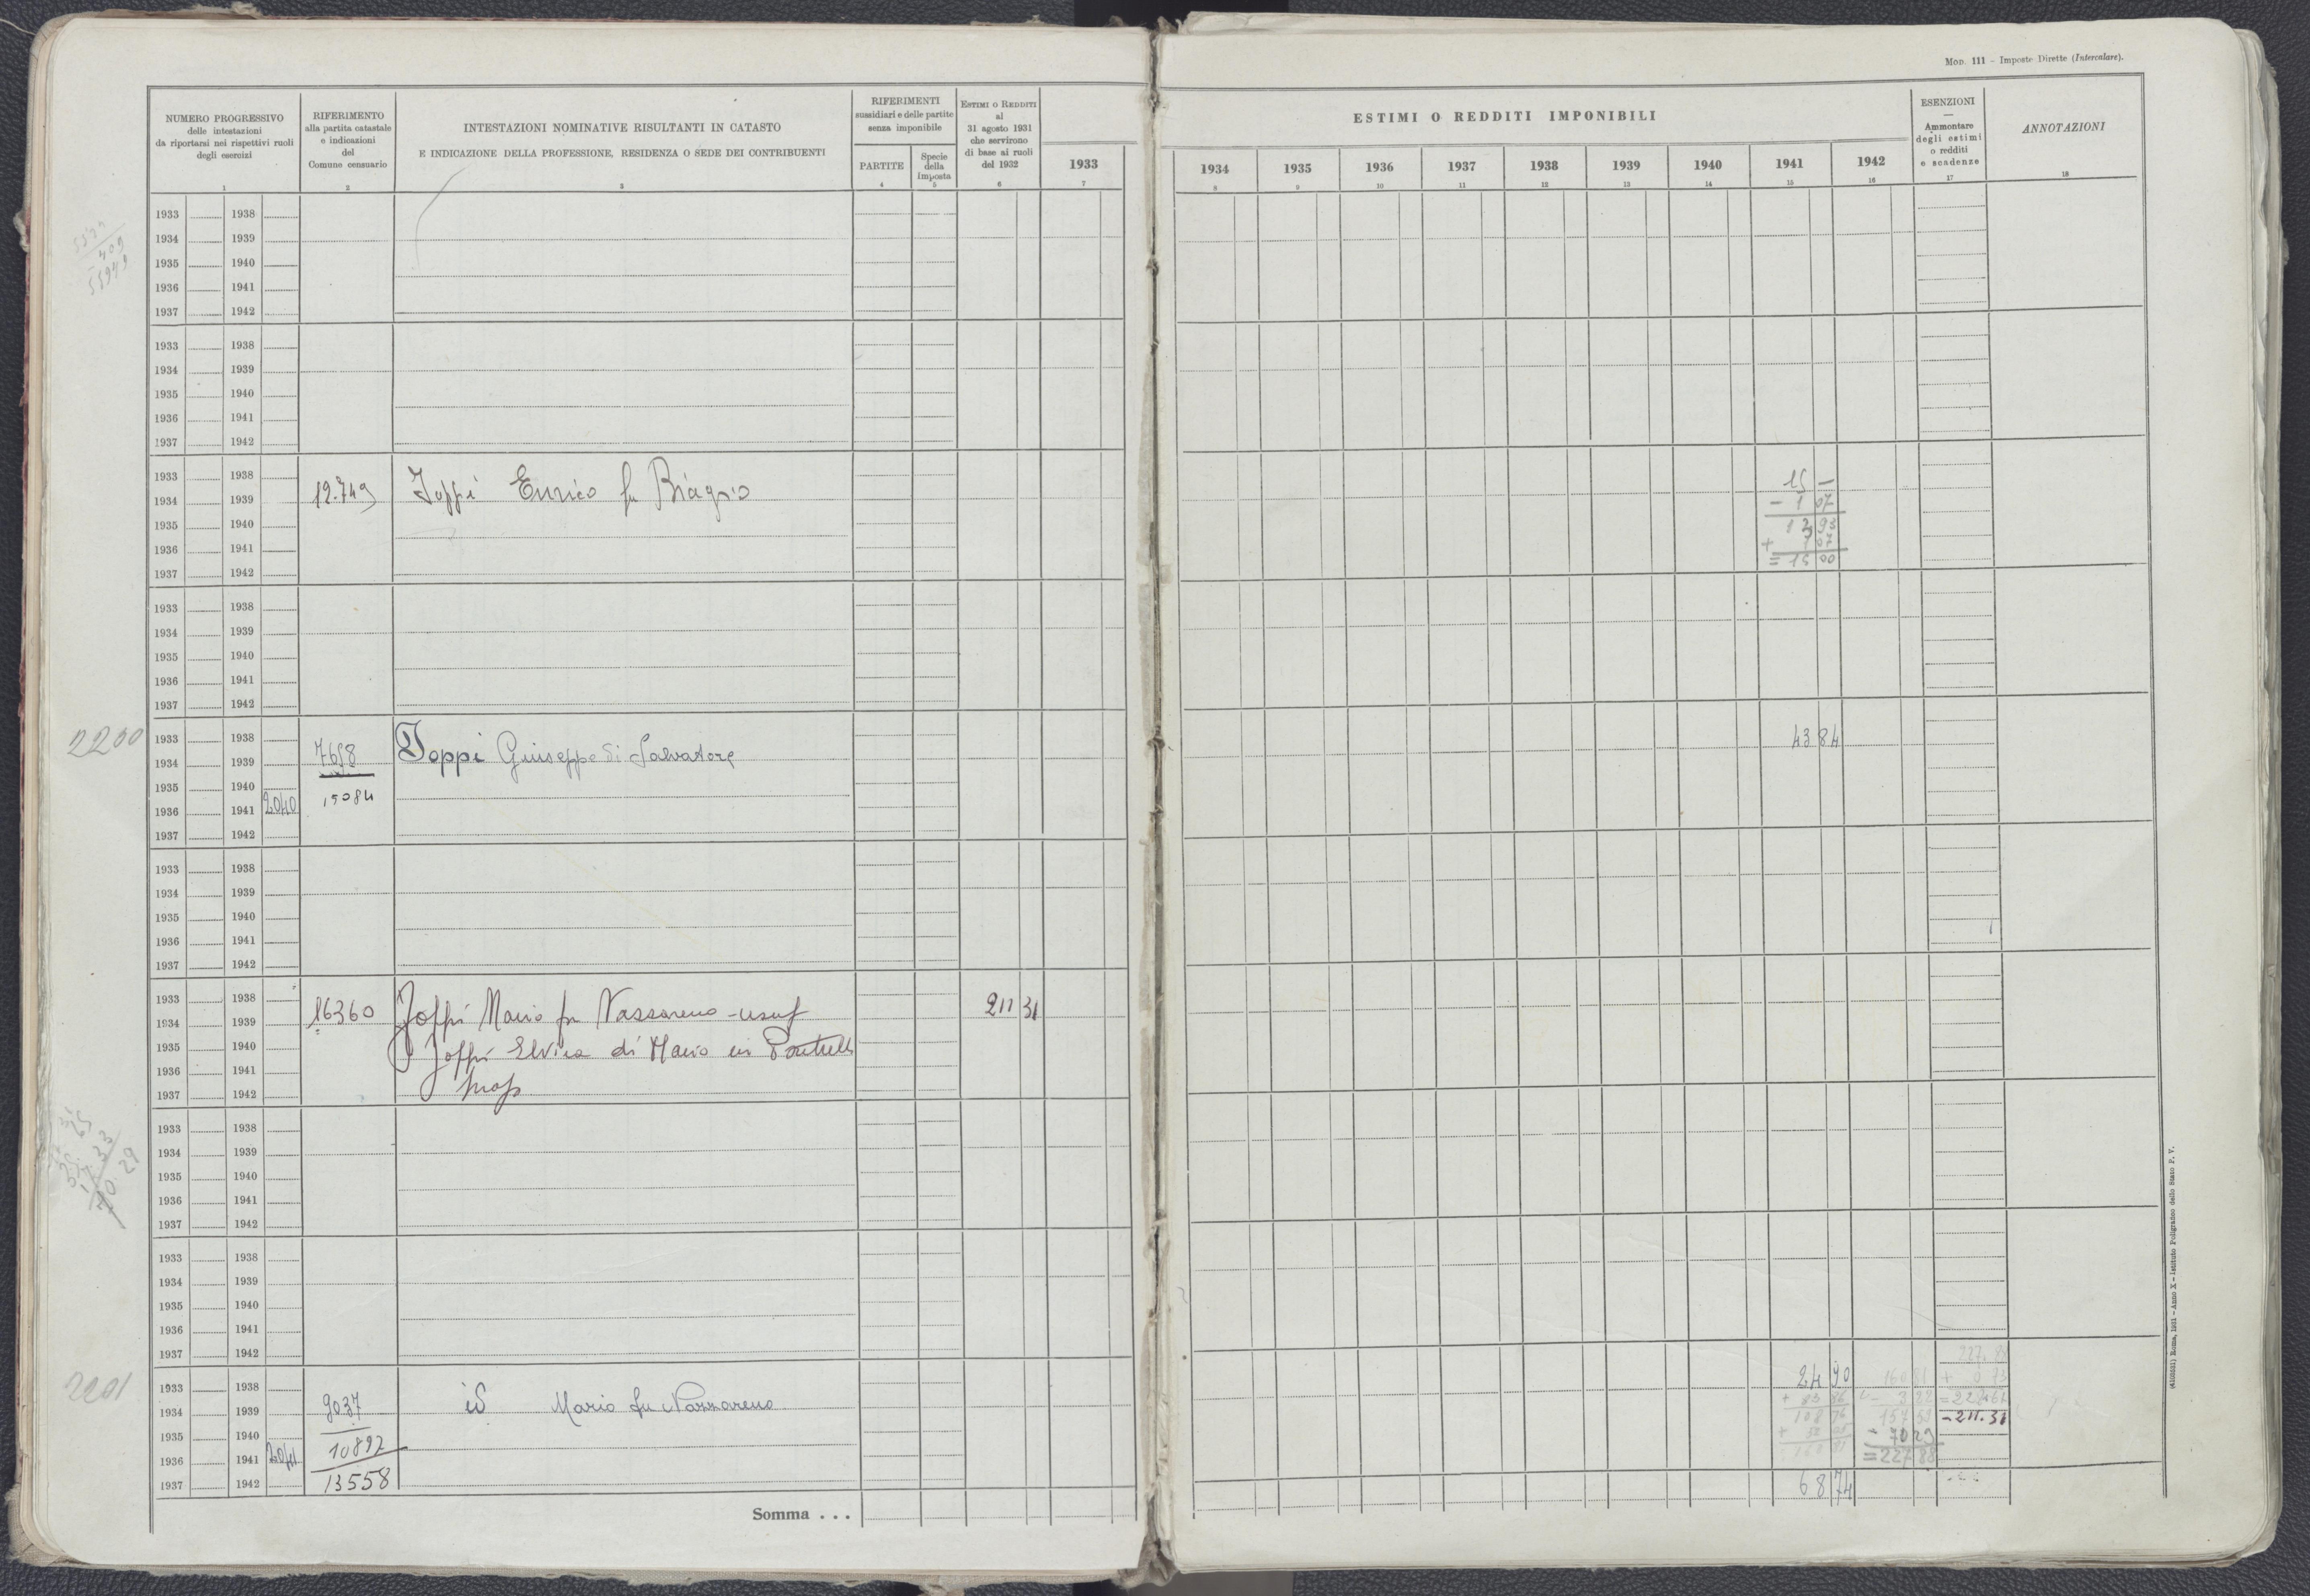 Mod. 111 - Imposte Dirette (Intercalare).
NUMERO PROGRESSIVO
delle intestazioni
da riportarsi nei rispettivi ruoli
degli esercizi
1
RIFERIMENTO
alla partita catastale
e indicazioni
del
Comune censuario
2
INTESTAZIONI NOMINATIVE RISULTANTI IN CATASTO
E INDICAZIONE DELLA PROFESSIONE, RESIDENZA O SEDE DEI CONTRIBUENTI
3
RIFERIMENTI
sussidiari e delle partite
senza imponibile
PARTITE
4
Specie
della
imposta
5
ESTIMI O REDDITI
al
31 agosto 1931
che servirono
di base ai ruoli
del 1932
6
ESTIMI O REDDITI IMPONIBILI
1933 1934 1935 1936 1937 1938 1939 1940 1941 1942
7 8 9 10 11 12 13 14 15 16
ESENZIONI
—
Ammontare
degli estimi
o redditi
e scadenze
17
ANNOTAZIONI
18
1933 1938
1934 1939
1935 1940
1936 1941
1937 1942
1933 1938
1934 1939
1935 1940
1936 1941
1937 1942
1933 1938 15 —
1934 1939 12.749 Joppi Enrico fu Biagio - 1 07
1935 1940 13 93
1936 1941 + 1 07
1937 1942 = 15 00
1933 1938
1934 1939
1935 1940
1936 1941
1937 1942
2200
1933 1938 43 84
1934 1939 7658 Joppi Giuseppe di Salvatore
1935 1940 15084
1936 1941 2040
1937 1942
1933 1938
1934 1939
1935 1940
1936 1941
1937 1942
1933 1938 16360 Joppi Mario fu Nazzareno - usuf 211 31
1934 1939
1935 1940 Joppi Elvira di Mario in
1936 1941
1937 1942 prop
1933 1938
1934 1939
1935 1940
1936 1941
1937 1942
1933 1938
1934 1939
1935 1940
1936 1941
1937 1942
2201
1933 1938 24 90
1934 1939 9037 id Mario fu Nazzareno
1935 1940 - 211.31
1936 1941 2041 10892 - 70 29
1937 1942 13558 = 227 88
68 74
Somma . . .
Roma, 1931 - Anno X - Istituto Poligrafico dello Stato P. V.